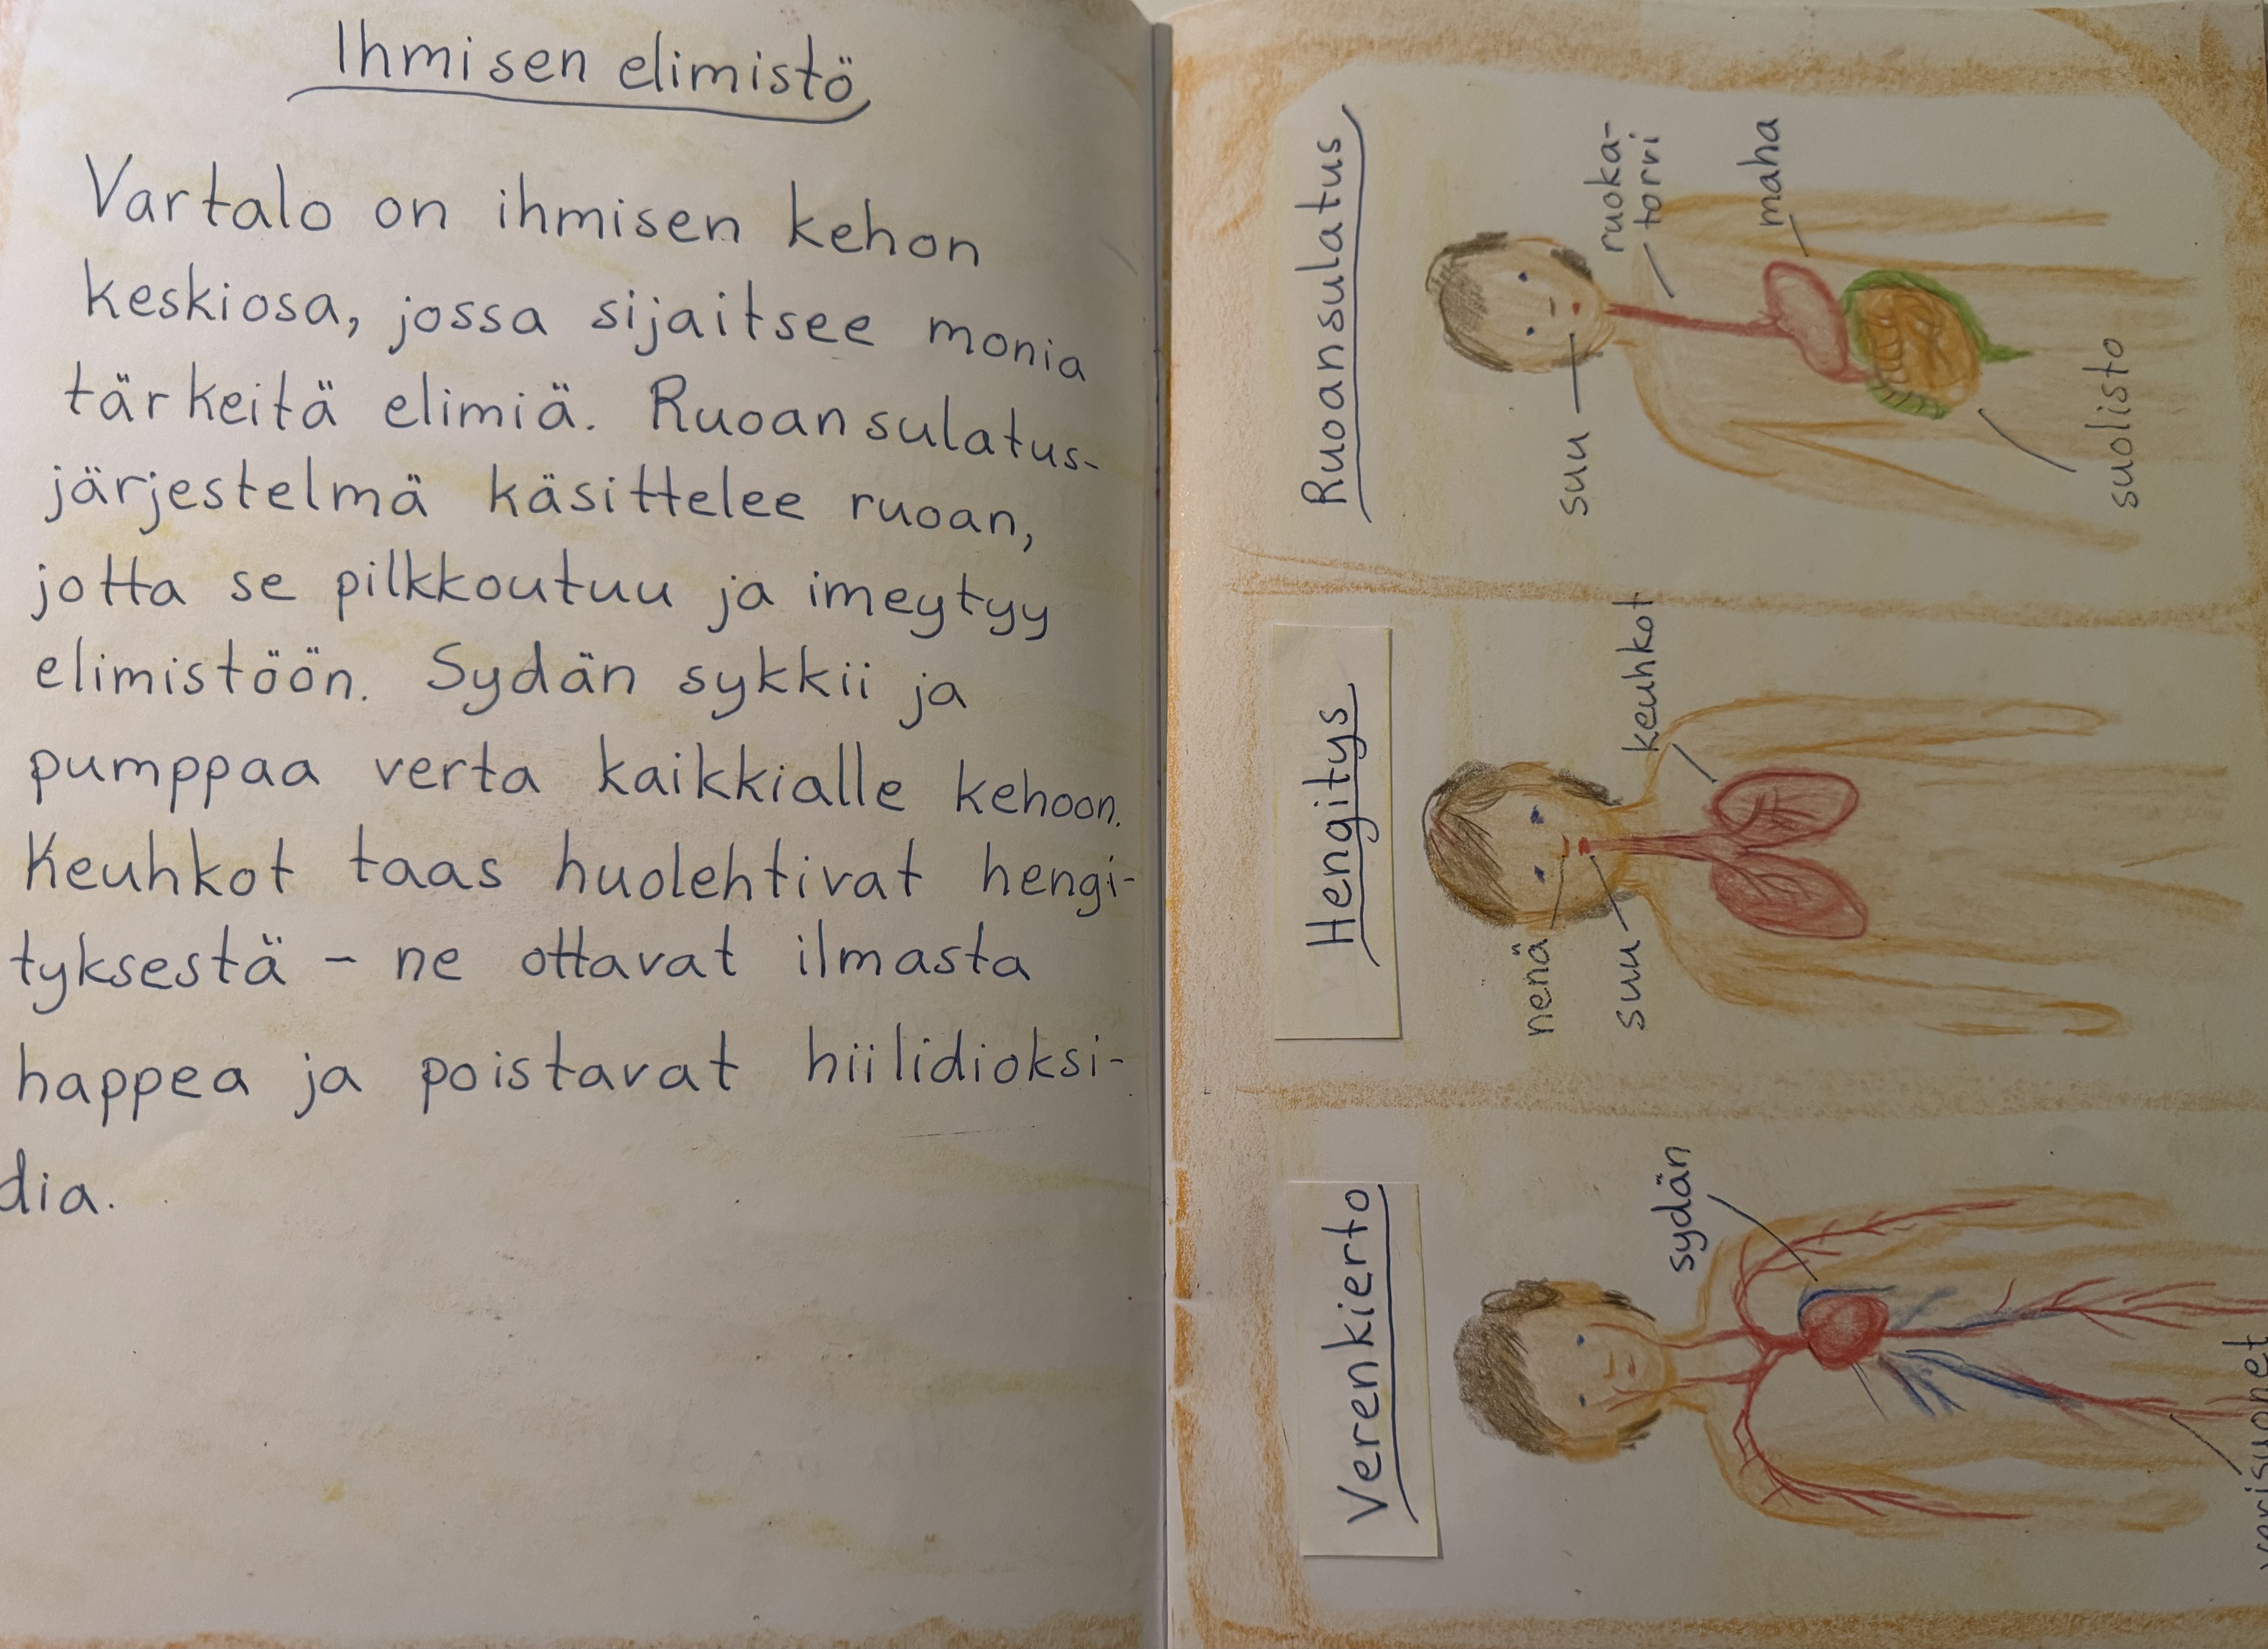 Ihmisen elimistö
Vartalo on ihmisen kehon
keskiosa, jossa sijaitsee monia
tärkeitä elimiä. Ruoansulatus-
järjestelmä käsittelee ruoan,
jotta se pilkkoutuu ja imeytyy
elimistöön. Sydän sykkii ja
pumppaa verta kaikkialle kehoon.
Keuhkot taas huolehtivat hengi-
tyksestä - ne ottavat ilmasta
happea ja poistavat hiilidioksi-
dia.
Verenkierto
sydän
verisuonet
Hengitys
nenä
suu
keuhkot
Ruoansulatus
suu
ruoka-
torvi
maha
suolisto